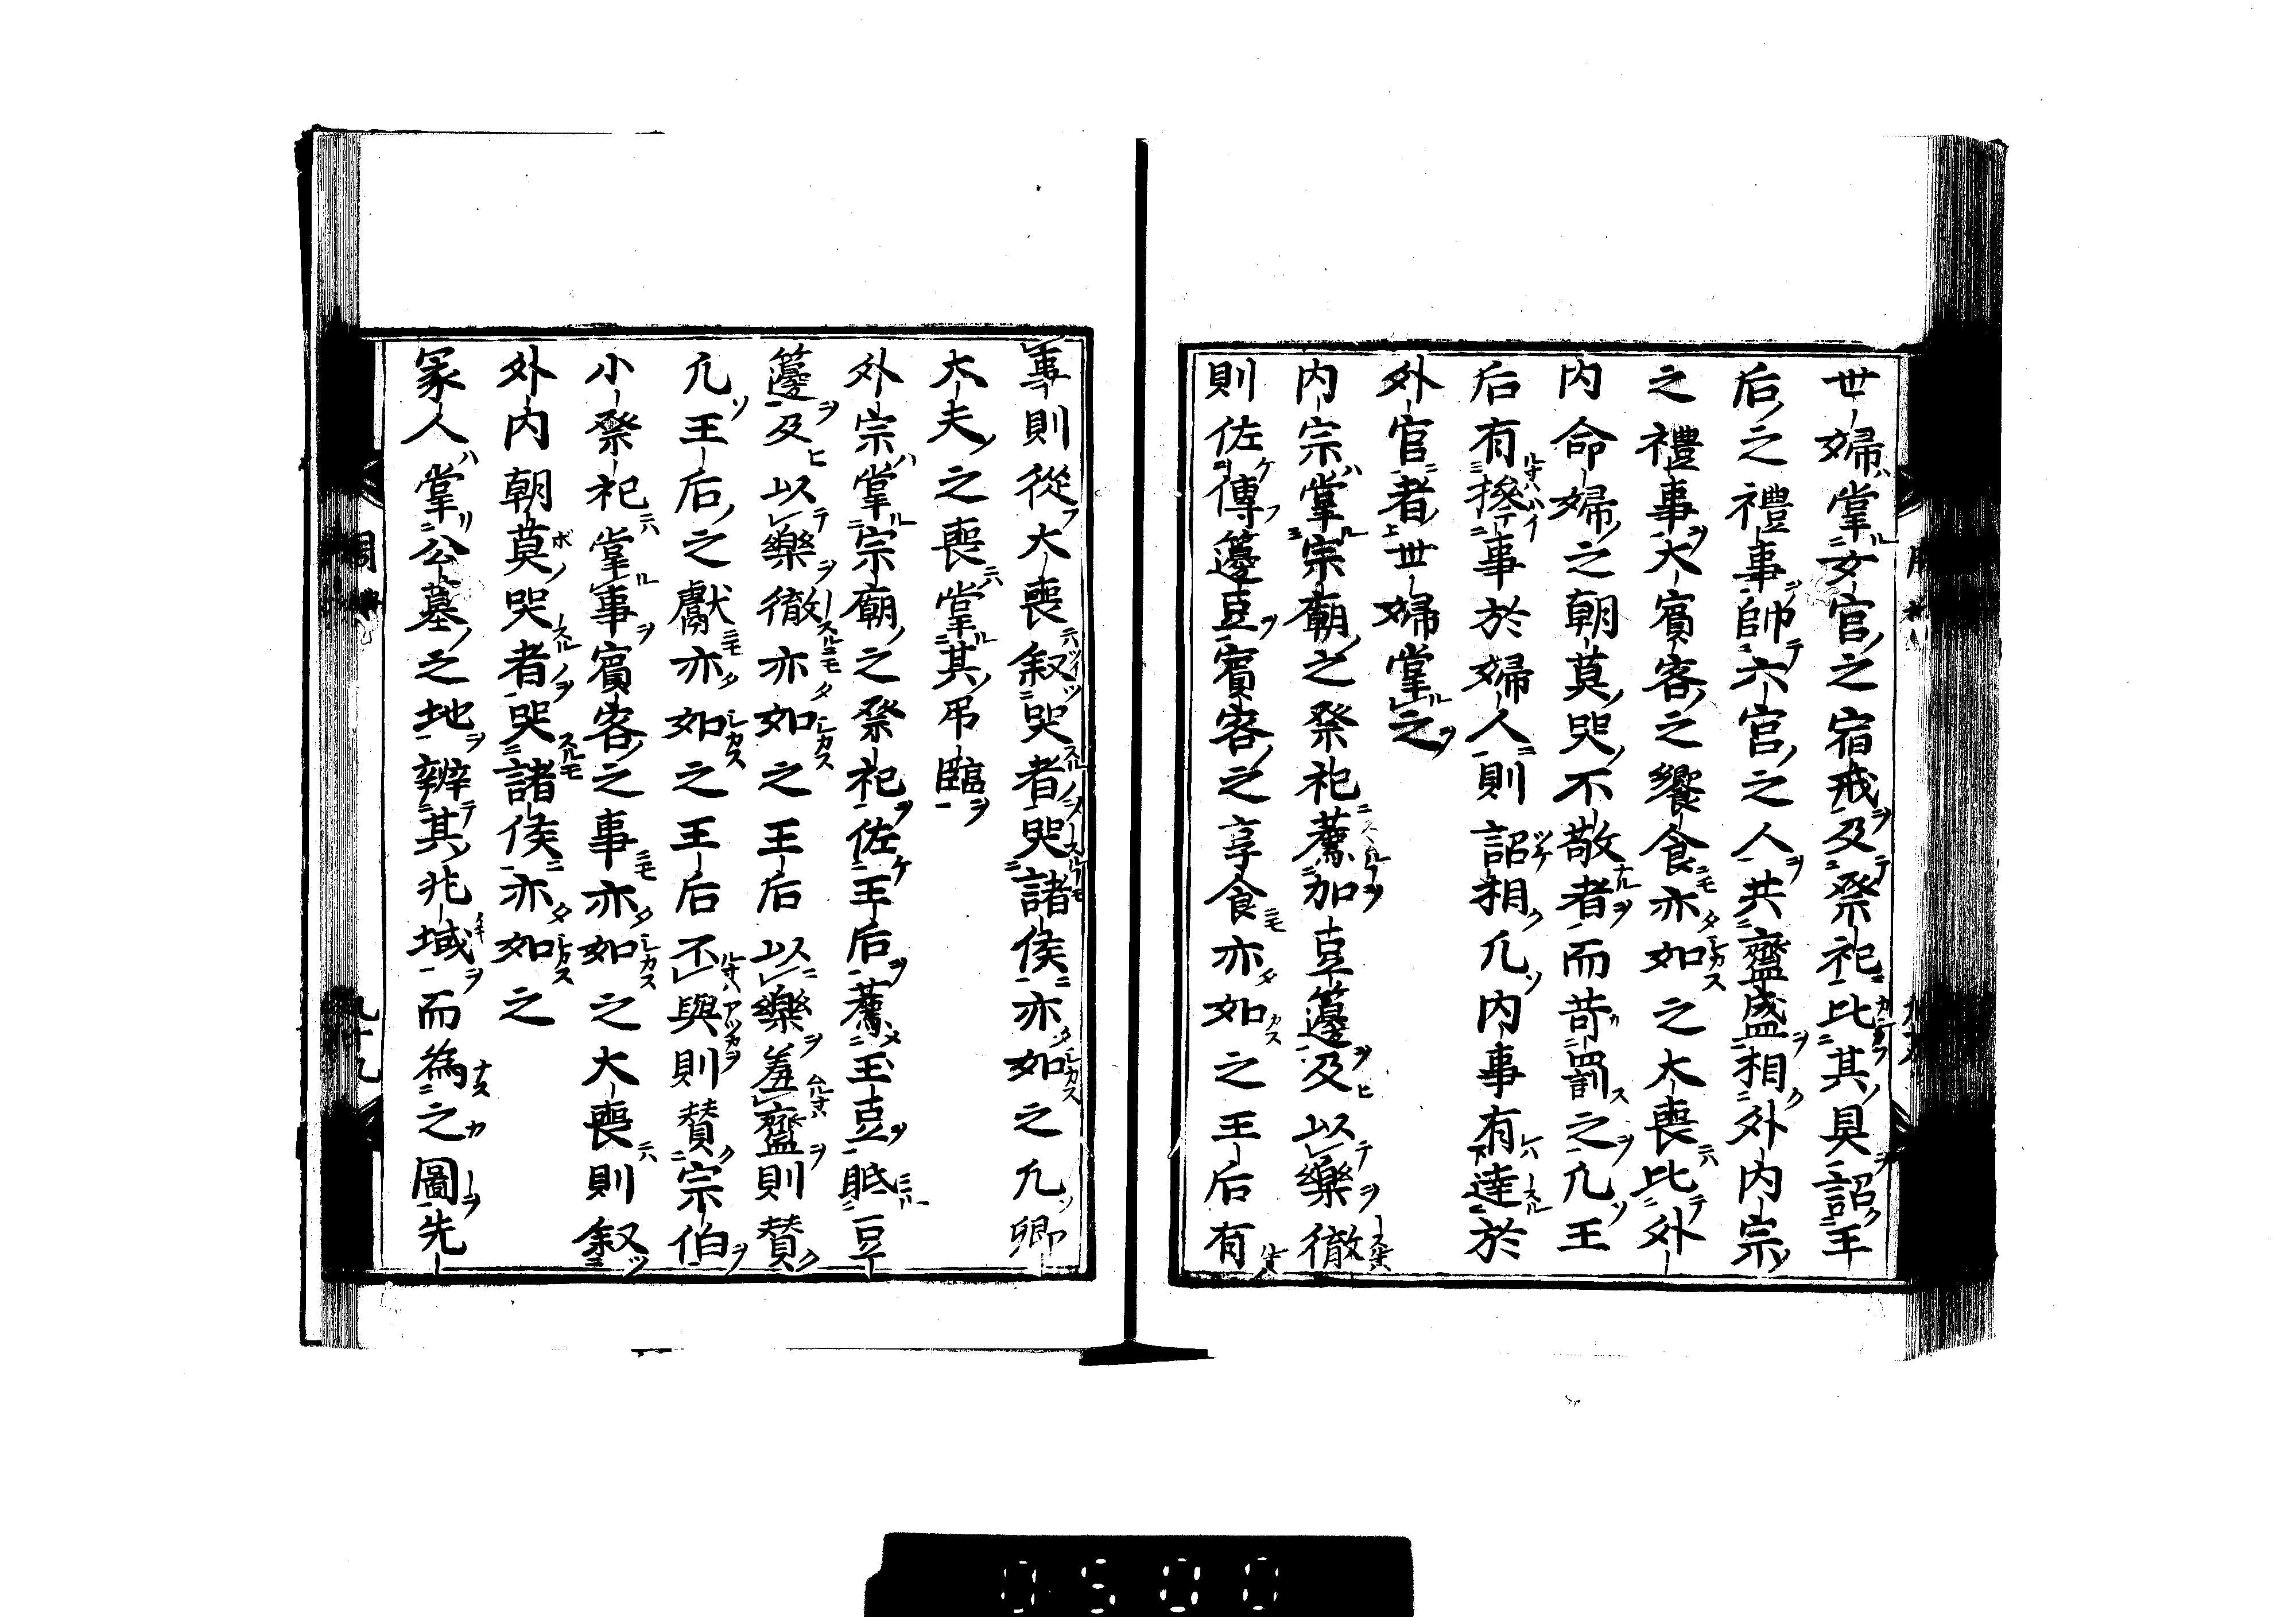 世婦掌女官之宿戒及祭祀比其具詔王
后之禮事帥六宮之人共齍盛相外内宗
之禮事大賓客之饗食亦如之大喪比外
内命婦之朝莫哭不敬者而苛罰之凢王
后有𢷎事於婦人則詔相凢内事有達於
外官者世婦掌之
内宗掌宗廟之祭祀薦加豆籩及以樂徹
則佐傳籩豆賓客之享食亦如之王后有
事則從大喪叙哭者哭諸侯亦如之凢卿
大夫之喪掌其弔臨
外宗掌宗廟之祭祀佐王后薦玉豆眡豆
籩及以樂徹亦如之王后以樂羞齍則賛
凢王后之獻亦如之王后不與則賛宗伯
小祭祀掌事賓客之事亦如之大喪則叙
外内朝莫哭者哭諸侯亦如之
冢人掌公墓之地辨其兆域而為之圖先
周禮
九十九
0500